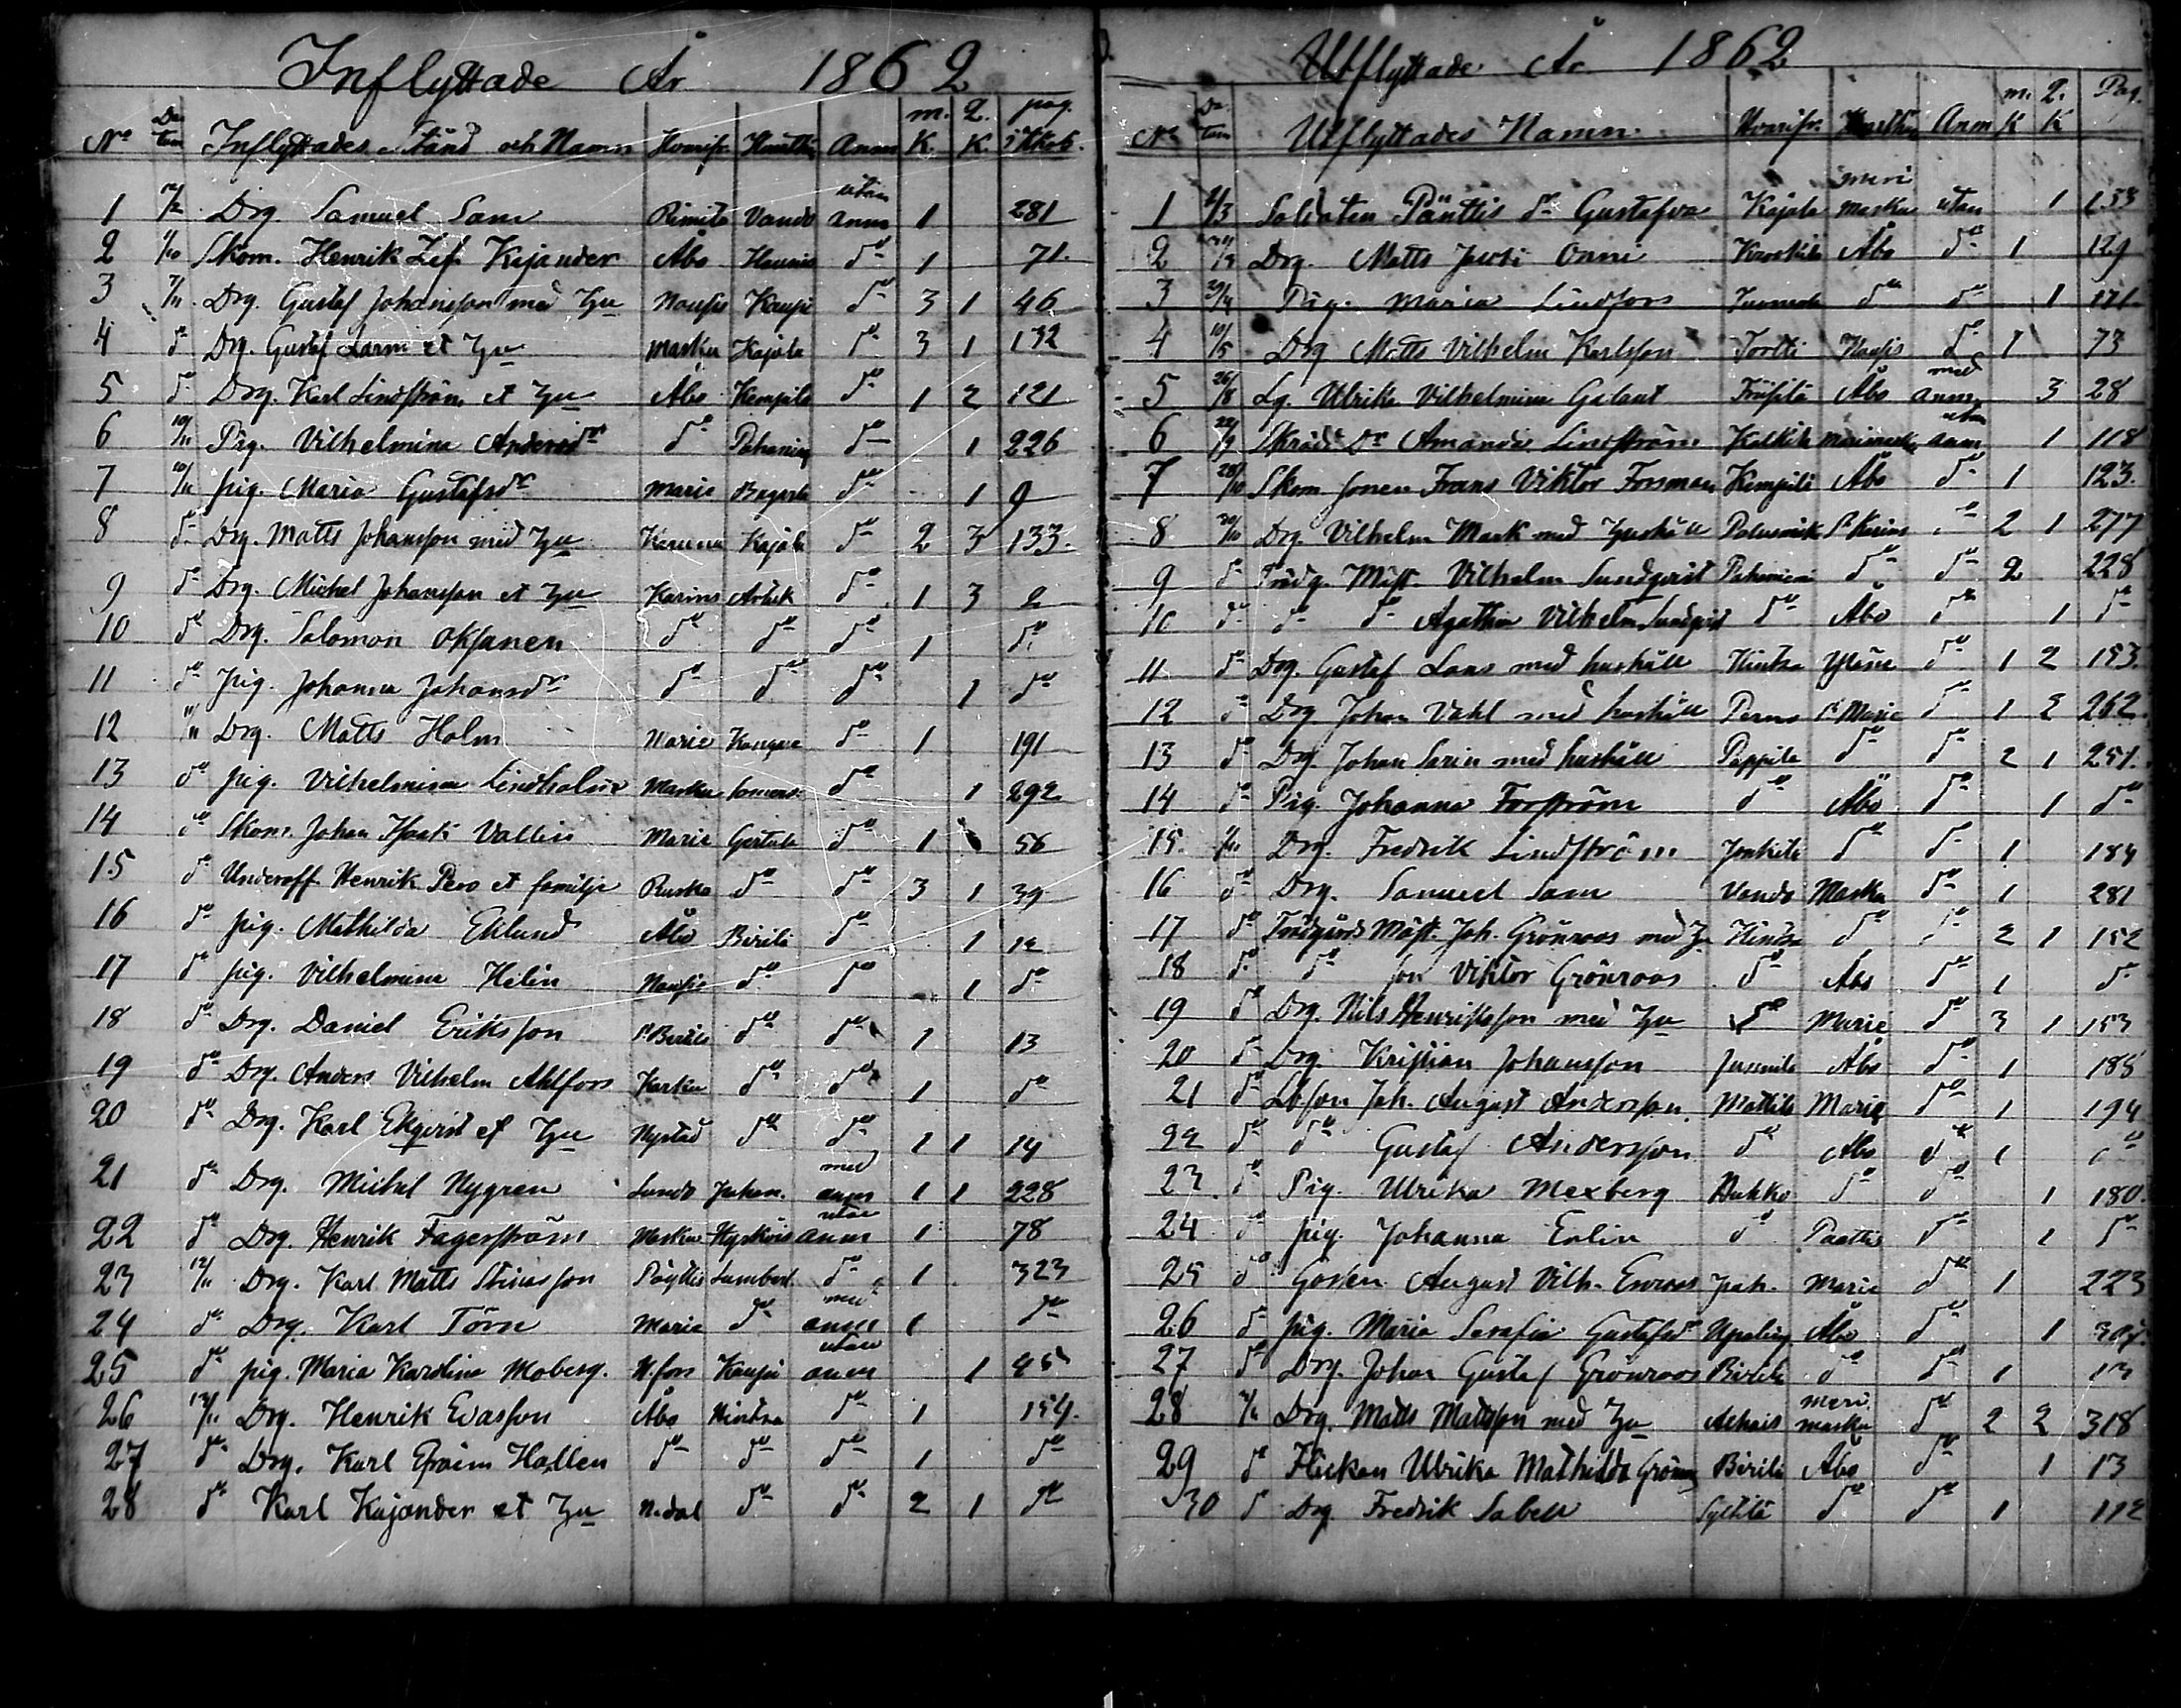 Inflyttade År 1862
No Da tum Inflyttades Stånd och Namn Hvarifr. Hvarth. Anm m. K. Q. K. pag. i Kkob.
1 12/2 Drg. Samuel Sam Rimito Vando utan anm 1 281
2 1/10 Skom. Henrik Zef. Kajander Åbo Haunis do 1 71
3 7/11 Drg. Gustaf Johansson med Hu Nousis Kaupi do 3 1 46
4 do Drg. Gustaf Larmi et Hu Masku Kajala do 3 1 132
5 do Drg. Karl Lindström et Hu Åbo Kempilä do 1 2 121
6 10/11 Pig. Vilhelmina Andersdr do Pahaniemi do 1 226
7 10/11 pig. Maria Gustafsdr Marie do 1 9
8 do Drg. Matts Johansson med Hu Karuna Kajala do 2 3 133.
9 do Drg. Michel Johansson et Hu Karins Arvik do 1 3 2
10 do Drg. Salomon Oksanen do do do 1 do
11 do Pig. Johanna Johansdr do do do 1 do
12 11/11 Drg. Matts Holm Marie Kangas do 1 191
13 do pig. Vilhelmina Lindholm Masku do 1 292
14 do Skom. Johan Isaak Vallin Marie Gertula do 1 56
15 do Underoff. Henrik Pero et familje Rusko do do 3 1 39
16 do pig. Mathilda Eklund Åbo Birilä do 1 12
17 do pig. Vilhelmina Helin Nousis do do 1 do
18 do Drg. Daniel Eriksson do do 1 13
19 do Drg. Anders Vilhelm Ahlfors Karku do do 1 do
20 do Drg. Karl Ekqvist et Hu Nystad do do 1 1 14
21 do Drg. Michel Nygren Lundo Pahan. med anm 1 1 228
22 do Drg. Henrik Fagerström Masku Hyrköis utan anm 1 78
23 12/11 Drg. Karl Matts Stinasson Pöyttis Lambert do 1 323
24 do Drg. Karl Törn Marie do med anm 1 do
25 do pig. Maria Karolina Moberg. H.fors Kaupi utan anm 1 45
26 13/11 Drg. Henrik Evasson Åbo Hintsa do 1 154.
27 do Drg. Karl Efraim Hallen do do do 1 do
28 do Karl Kajander et Hu N.dal do do 2 1 do
Utflyttade År 1862
No Da tum Utflyttades Namn. Hvarifr. Hvarthän Anm m. K Q. K Pag.
1 2/3 Soldaten Pänttis dr Gustafva Kajala meri masku utan 1 133
2 Drg. Matts Jacob Onni Kroskila Åbo do 1 129
3 29/4 Pig. Maria Lindfors do do 1 171
4 10/5 Drg Matts Vilhelm Karlsson Tortti Nousis do 1 73
5 26/8 Lg. Ulrika Vilhelmina Galant Åbo med anm 3 28
6 22/9 Skräd. Dr Amanda Lindström Kalkila Merimasku utan anm 1 118
7 28/10 Skom sonen Frans Viktor Forsman Kempilä Åbo do 1 123.
8 30/10 Drg. Vilhelm Mark med Hushåll St Karins do 2 1 277
9 do Trädg. Mäst. Vilhelm Sundqvist Pahaniemi do do 2 228
10 do do do Agathon Vilhelm Sundqvist do Åbo do 1 do
11 do Drg. Gustaf Lans med hushåll Hintsa Yläne do 1 2 153.
12 do Drg Johan Vahl med hushåll Perno St Marie do 1 2 262.
13 do Drg. Johan Sarin med hushåll Pappila do do 2 1 251.
14 do Pig. Johanna Forström do Åbo do 1 do
15. 1/11 Drg. Fredrik Lindström Junkila do do 1 184
16 do Drg. Samuel Sam Vando Masku do 1 281
17 do Trädgårds Mäst. Joh. Grönroos med H. Hintsa do do 2 1 152
18 do do son Viktor Grönroos do Åbo do 1 do
19 do Drg. Nils Henriksson med Hu do Marie do 3 1 153
20 do Drg. Kristian Johansson Åbo do 1 185
21 do Lbson Joh. August Andersson. Mattila Marie do 1 194
22 do do Gustaf Andersson do Åbo do 1 do
23. do Pig. Ulrika Mexberg Hukko do do 1 180.
24 do pig. Johanna Erlin do Paattis do 1 do
25 do Gossen August Vilh. Enroos Pah. Marie do 1 223
26 do pig. Maria Serafia Gustafsdr Åbo do 1
27 do Drg. Johan Gustaf Grönroos Birilä do do 1 13
28 Drg. Matts Mattsson med Hu meri masku do 2 2 318
29 do Flickan Ulrika Mathilda Grönroos Birilä Åbo do 1 13
30 do Drg. Fredrik Sabell Syltilä do do 1 112